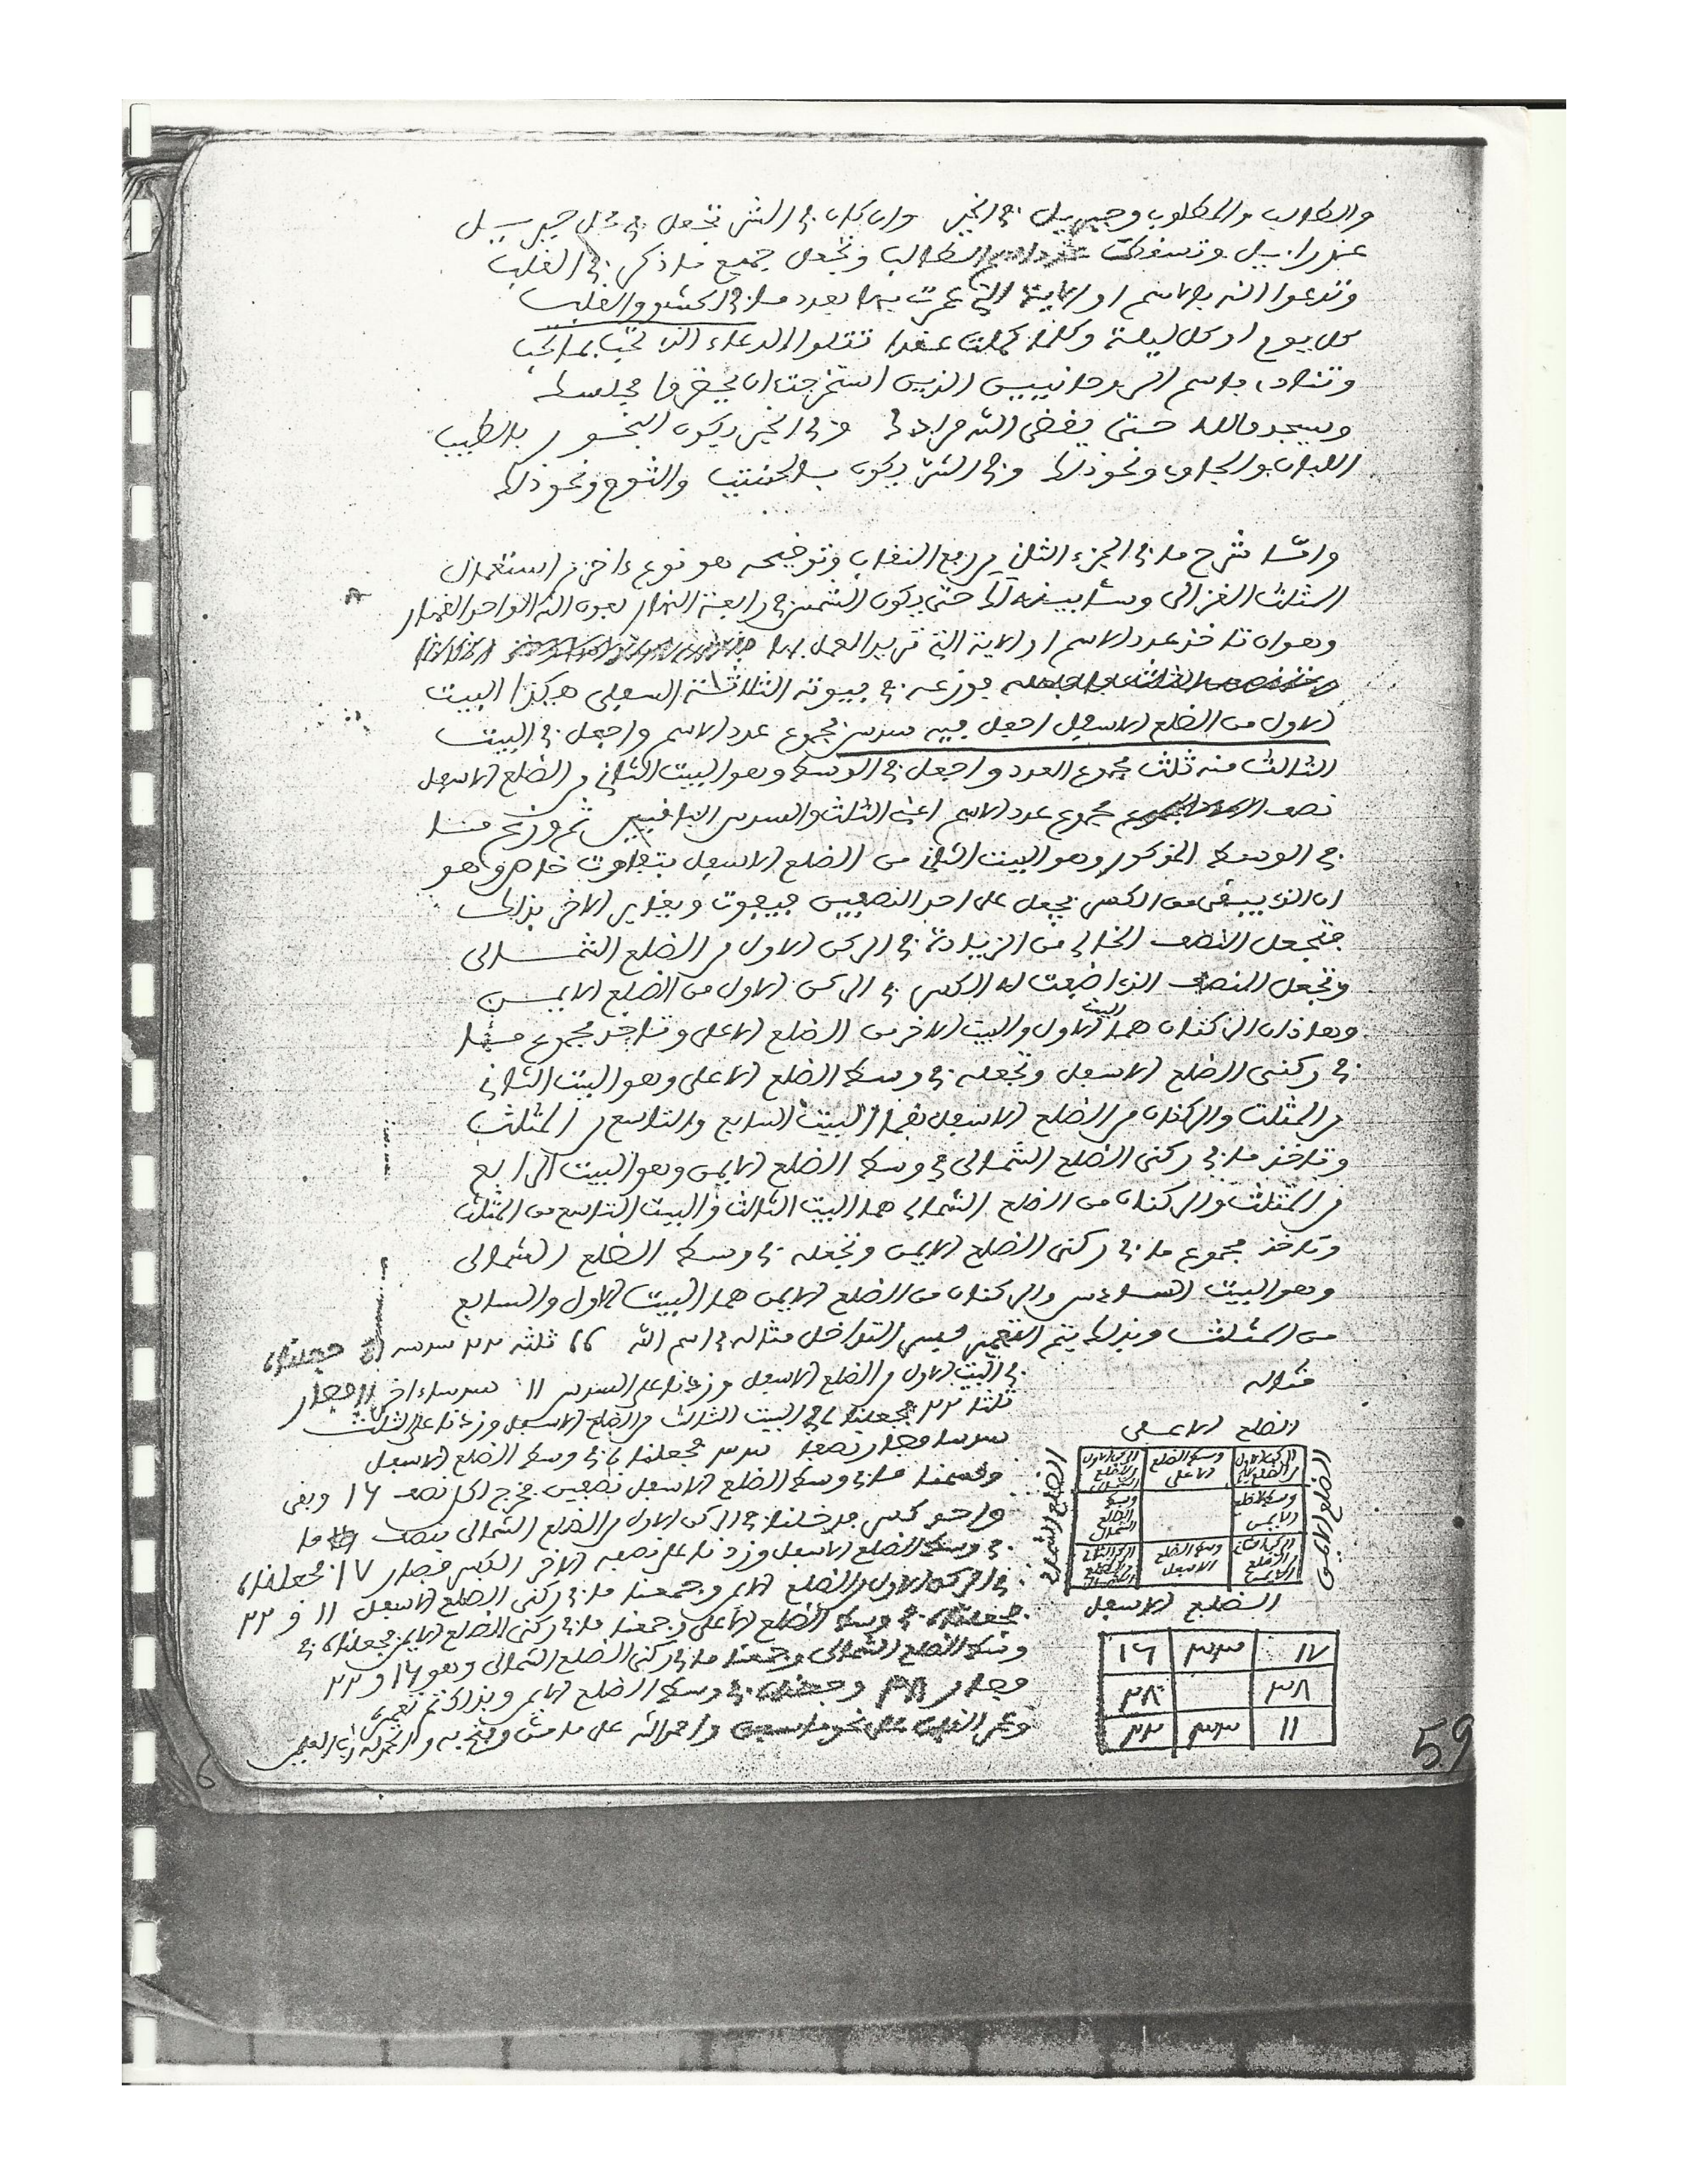 والطالب والمطلوب وجبريل في الخير وان كان في الشر تجعل في محل جبرييل
عزراييل وتسقط الطالب وتجعل جميع ما ذكر في القلب
وتدعوا الله بالاسم او الاية التي عمرت بها بعدد ما في الحشو والقلب
كل يوم او كل ليلة وكلما كملت عقدا تتلوا الدعاء الذي تحب بما تحب
وتنادي باسم الروحانيين الذين استخرجت ان يحضروا مجلسك
ويسجدوا لله حتى يقضي الله مرادك وفي الخير يكون البخور بالطيب
اللبان والجاوي ونحو ذلك وفي الشر يكون بالحنتيت والثوم ونحو ذلك
واما شرح ما في الجزء الثاني من ربع النقاب وتوضيحه هو نوع ءاخر من استعمال
المثلث الغزالي وسابينه لك حتى يكون الشمس في رابعة النهار بعون الله الواحد القهار
وهو ان تاخذ عدد الاسم او الاية التي تريد العمل بها
توزعه في بيوته الثلاثة السفلى هكذا البيت
الاول من الضلع الاسفل اجعل فيه سدس مجموع عدد الاسم واجعل في البيت
الثالث منه ثلث مجموع العدد واجعل في الوسط وهو البيت الثاني من الضلع الاسفل
نصف مجموع عدد الاسم اعني الثلث والسدس الباقيين ثم وزع ما
في الوسط المذكور وهو البيت الثاني من الضلع الاسفل بتفاوت خاص وهو
ان الذي يبقى من الكسر يجعل على احد النصفين فيفوت ويغاير الاخر بذلك
فتجعل النصف الخالي من الزيادة في الركن الاول من الضلع الشمالي
وتجعل النصف الذي اضفت له الكسر في الركن الاول من الضلع الايمن
وهاذان الركنان هما البيت الاول والبيت الاخر من الضلع الاعلى وتاخذ مجموع ما
في ركني الضلع الاسفل وتجعله في وسط الضلع الاعلى وهو البيت الثاني
من المثلث والركنان من الضلع الاسفل هما البيت السابع والتاسع من المثلث
وتاخذ ما في ركني الضلع الشمالي في وسط الضلع الايمن وهو البيت الرابع
من المثلث والركنان من الضلع الشمالي هما البيت الثالث والبيت التاسع من المثلث
وتاخذ مجموع ما في ركني الضلع الايمن وتجعله في وسط الضلع الشمالي
وهو البيت السادس والركنان من الضلع الايمن هما البيت الاول والسابع
من المثلث وبذلك يتم التعمير مثاله في اسم الله ٦٦ ثلثه ٢٢ سدسه ١١ جعلناه
في البيت الاول من الضلع الاسفل وزدنا على السدس ١١ سدسا ءاخر ١١ فصار
ثلثا ٢٢ فجعلناه في البيت الثالث من الضلع الاسفل وزدنا على الثلث
سدسا فصار نصفا ٣٣ فجعلناه في وسط الضلع الاسفل
وقسمنا ما في وسط الضلع الاسفل نصفين فخرج لكل نصف ١٦ وبقي
واحد كسر في الركن الاول من الضلع الشمالي نصف ما
في وسط الضلع الاسفل وزدنا على نصفه الاخر الكسر فصار ١٧ فجعلناه
في الركن الاول من الضلع الايمن وجمعنا ما في ركني الضلع الاسفل ١١ و ٢٢
فجعلناه في وسط الضلع الاعلى وجمعنا ما في ركني الضلع الايمن فجعلناه في
وسط الضلع الشمالي وجمعنا ما في ركني الضلع الشمالي وهو ١٦ و ٢٢
فصار ٣٨ وجعلناه في وسط الضلع الايمن وبذلك تم تعميره
وعمر القلب على نحو ما سبق واحمد الله على ما من وفتح به والحمد لله رب العلمين
مثاله
الضلع الاعلى
الضلع الايمن
الضلع الشمالي
الركن الاول من الضلع الايمن وسط الضلع الاعلى الركن الاول من الضلع الشمالي
وسط الضلع الايمن وسط الضلع الشمالي
الركن الثاني من الضلع الايمن وسط الضلع الاسفل الركن الثاني من الضلع الشمالي
الضلع الاسفل
١٧ ٣٣ ١٦
٣٨ ٢٨
١١ ٣٣ ٢٢
59
6